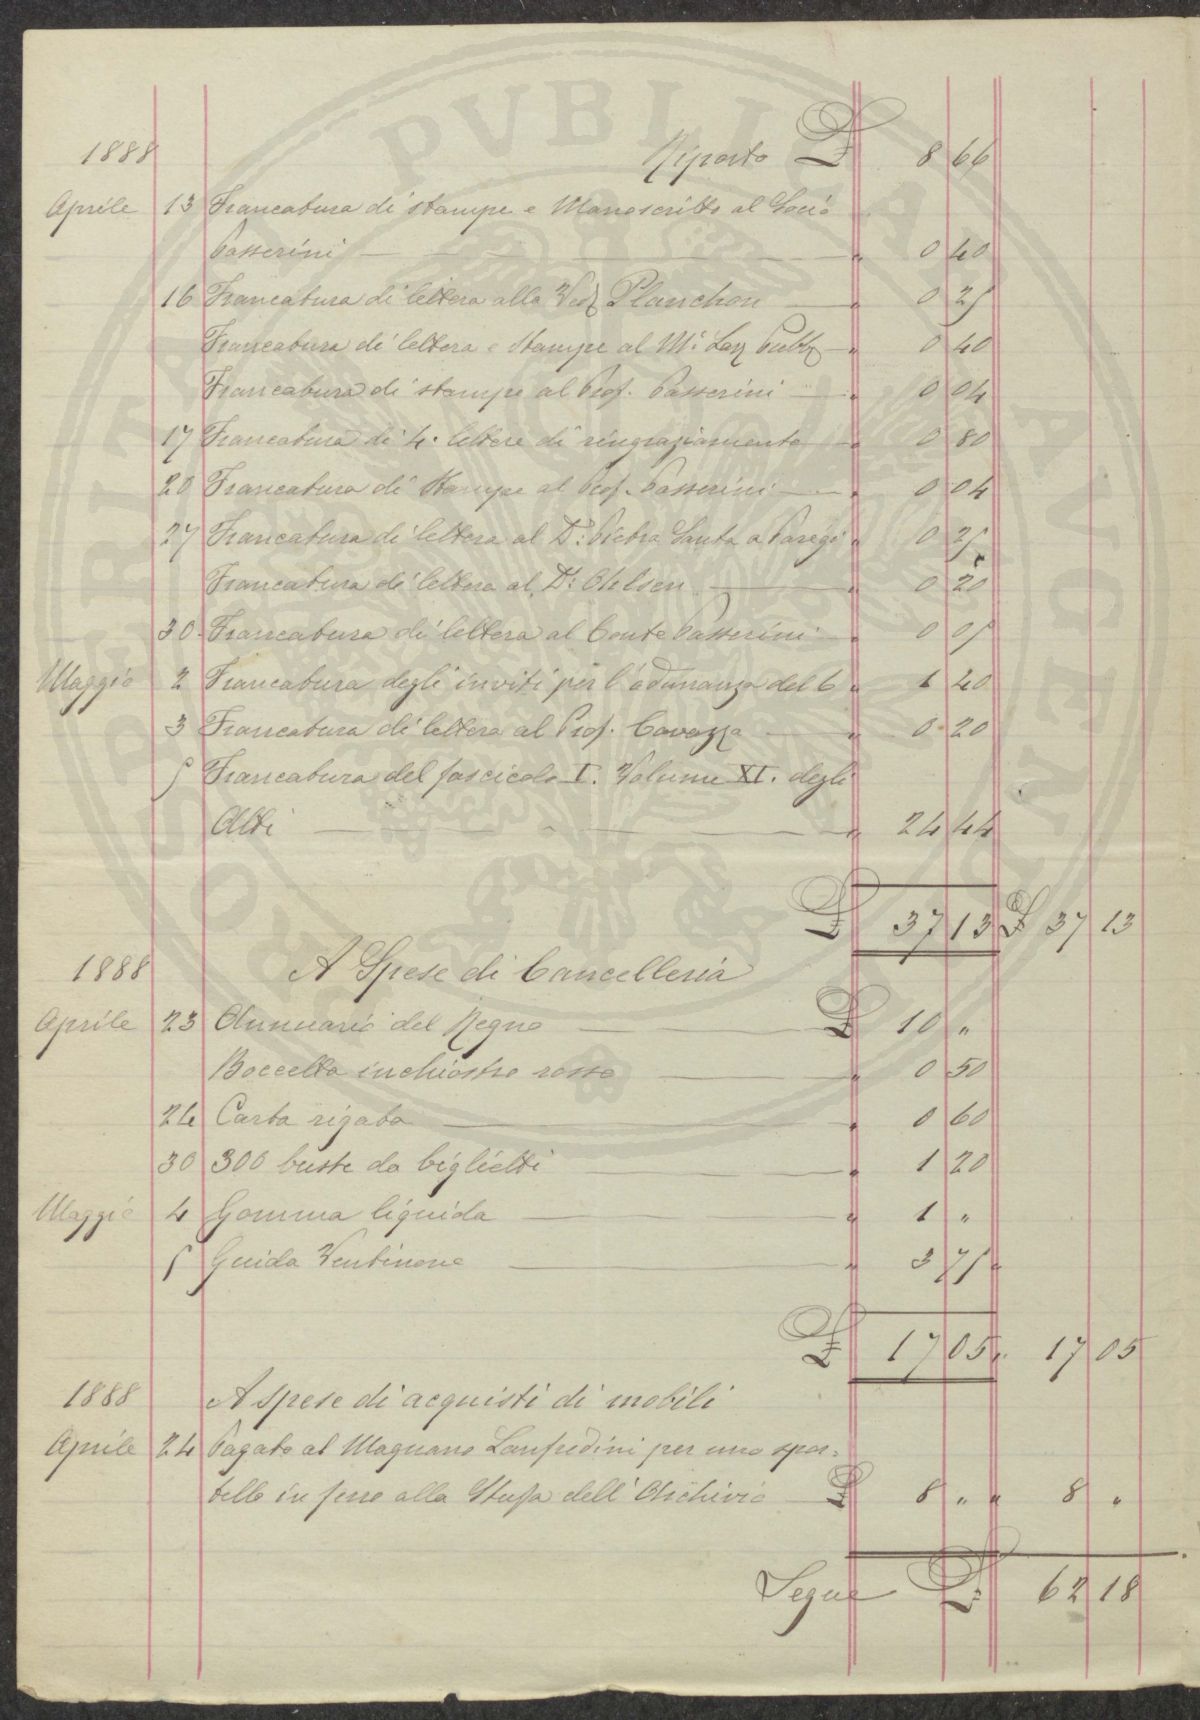 PROSPERITAS PUBLICA AUGENDA
1888 Riporto £ 8 66
Aprile 13 Francatura di stampe e Manoscritto al Socio
Passerini " 0 40
16 Francatura di lettera alla Ved. Planchon " 0 25
Francatura di lettera e stampe al M.º Lav. Pubb. " 0 40
Francatura di stampe al Prof. Passerini " 0 04
17 Francatura di 4. lettere di ringraziamento " 0 80
20 Francatura di Stampe al Prof. Passerini " 0 04
27 Francatura di lettera al D.r Pietra Santa a Parigi " 0 25
Francatura di lettera al D.r Ohlsen " 0 20
30 Francatura di lettera al Conte Passerini " 0 05
Maggio 2 Francatura degli inviti per l'adunanza del 6 " 1 40
3 Francatura di lettera al Prof. Cavazza " 0 20
5 Francatura del fascicolo I. Volume XI. degli
Atti " 24 44
£ 37 13 £ 37 13
1888 A Spese di Cancelleria
Aprile 23 Annuario del Regno £ 10 "
Boccetta inchiostro rosso " 0 50
24 Carta rigata " 0 60
30 300 buste da biglietti " 1 20
Maggio 4 Gomma liquida " 1 "
5 Guida Ventinove " 3 75
£ 17 05 " 17 05
1888 A spese di acquisti di mobili
Aprile 24 Pagato al Magnano Lanfredini per uno spor-
tello in ferro alla Stufa dell'Archivio £ 8 " " 8 "
Segue £ 62 18